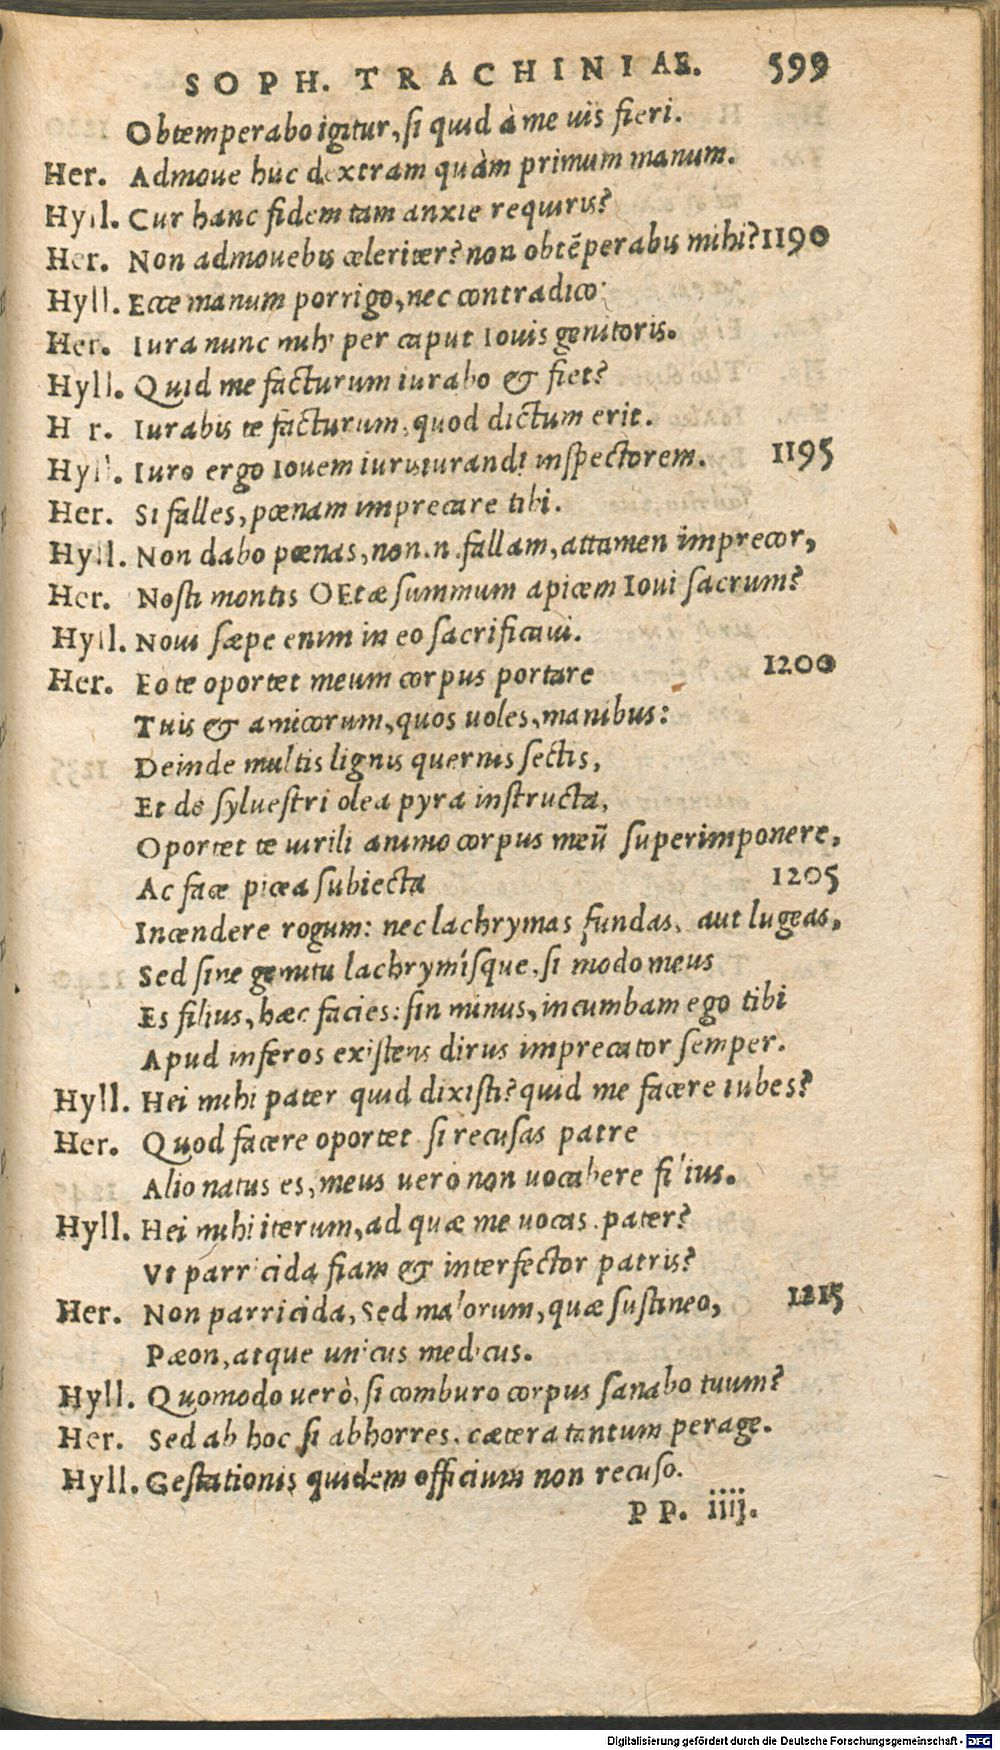 SOPH. TRACHINIAE. 599
Obtemperabo igitur, si quid à me uis fieri.
Her. Admoue huc dextram quàm primum manum.
Hyll. Cur hanc fidem tam anxie requiris?
Her. Non admouebis celeriter? non obtēperabis mihi? 1190
Hyll. Ecce manum porrigo, nec contradico.
Her. Iura nunc mihi per caput Iouis genitoris.
Hyll. Quid me facturum iurabo & fiet?
Her. Iurabis te facturum, quod dictum erit.
Hyll. Iuro ergo Iouem iurisiurandi inspectorem. 1195
Her. Si falles, pœnam imprecare tibi.
Hyll. Non dabo pœnas, non.n.fallam, attamen imprecor,
Her. Nosti montis OEtæ summum apicem Ioui sacrum?
Hyll. Noui sæpe enim in eo sacrificaui.
Her. Eo te oportet meum corpus portare 1200
Tuis & amicorum, quos uoles, manibus:
Deinde multis lignis quernis sectis,
Et de syluestri olea pyra instructa,
Oportet te uirili animo corpus meū superimponere,
Ac face picea subiecta 1205
Incendere rogum: nec lachrymas fundas, aut lugeas,
Sed sine gemitu lachrymísque, si modo meus
Es filius, hæc facies: sin minus, incumbam ego tibi
Apud inferos existens dirus imprecator semper.
Hyll. Hei mihi pater quid dixisti? quid me facere iubes?
Her. Quod facere oportet si recusas patre
Alio natus es, meus uero non uocabere filius.
Hyll. Hei mihi iterum, ad quæ me uocas pater?
Vt parricida fiam & interfector patris?
Her. Non parricida, Sed malorum, quæ sustineo, 1215
Pæon, atque unicus medicus.
Hyll. Quomodo uerò, si comburo corpus sanabo tuum?
Her. Sed ab hoc si abhorres, cætera tantum perage.
Hyll. Gestationis quidem officium non recuso.
PP. iiij.
Digitalisierung gefördert durch die Deutsche Forschungsgemeinschaft - DFG